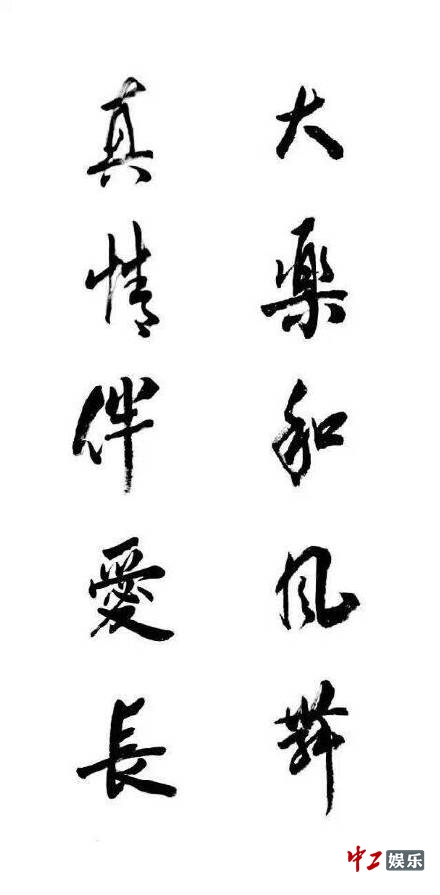 大樂和風舞
真情伴愛長
中工娱乐